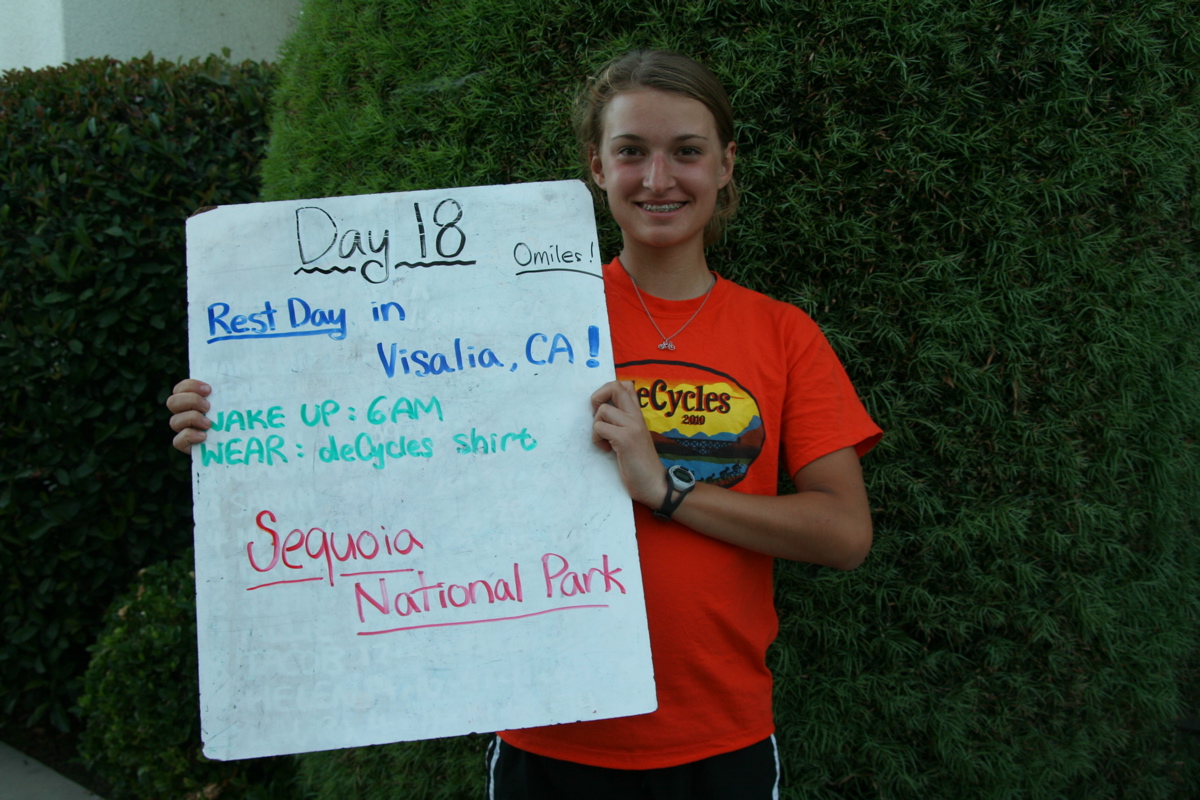 Day 18
0miles!
Rest Day in
Visalia, CA!
WAKE UP: 6AM
WEAR: deCycles shirt
Sequoia
National Park
deCycles
2010